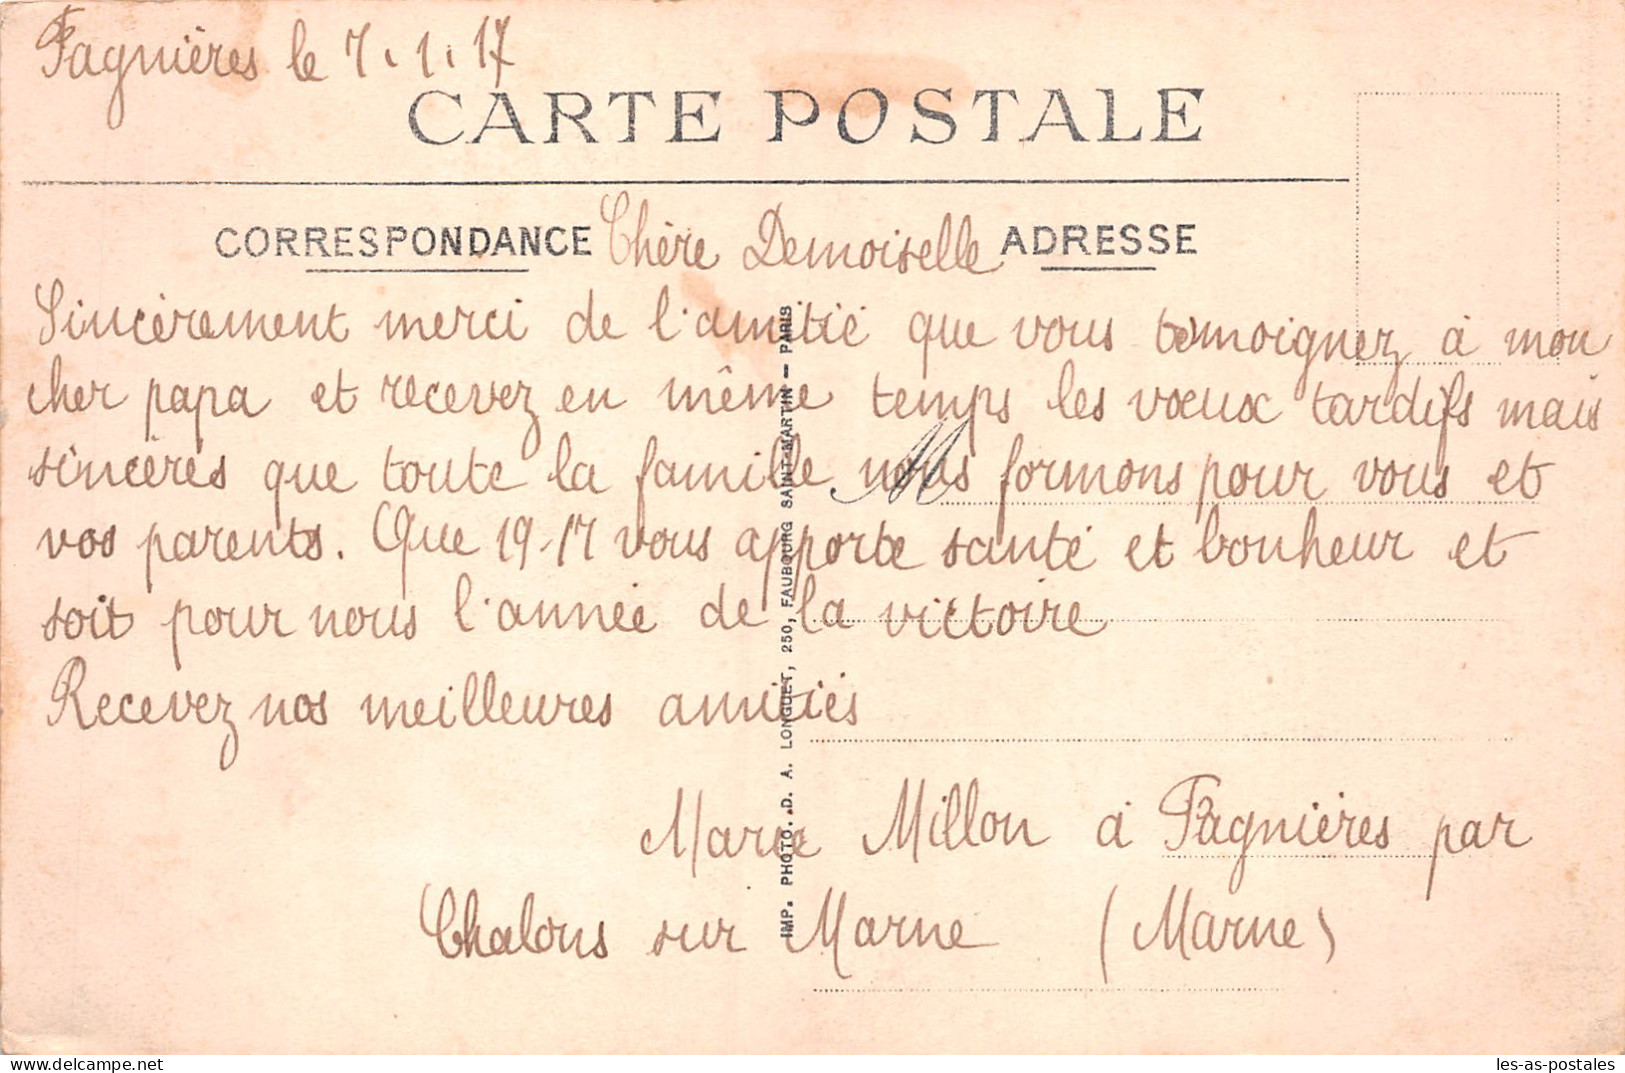 Fagnières le 7.1.17
CARTE POSTALE
CORRESPONDANCE Chère Demoiselle ADRESSE
Sincèrement merci de l'amitié que vous témoignez à mon
cher papa et recevez en même temps les vœux tardifs mais
sincères que toute la famille nous formons pour vous et
vos parents. Que 19-17 vous apporte santé et bonheur et
soit pour nous l'année de la victoire
Recevez nos meilleures amitiés
Millon à Fagnières par
Chalons sur Marne (Marne)
IMP. PHOTO. D. A. LONGUET, 250, FAUBOURG SAINT-MARTIN - PARIS
delcampe.net
les-as-postales